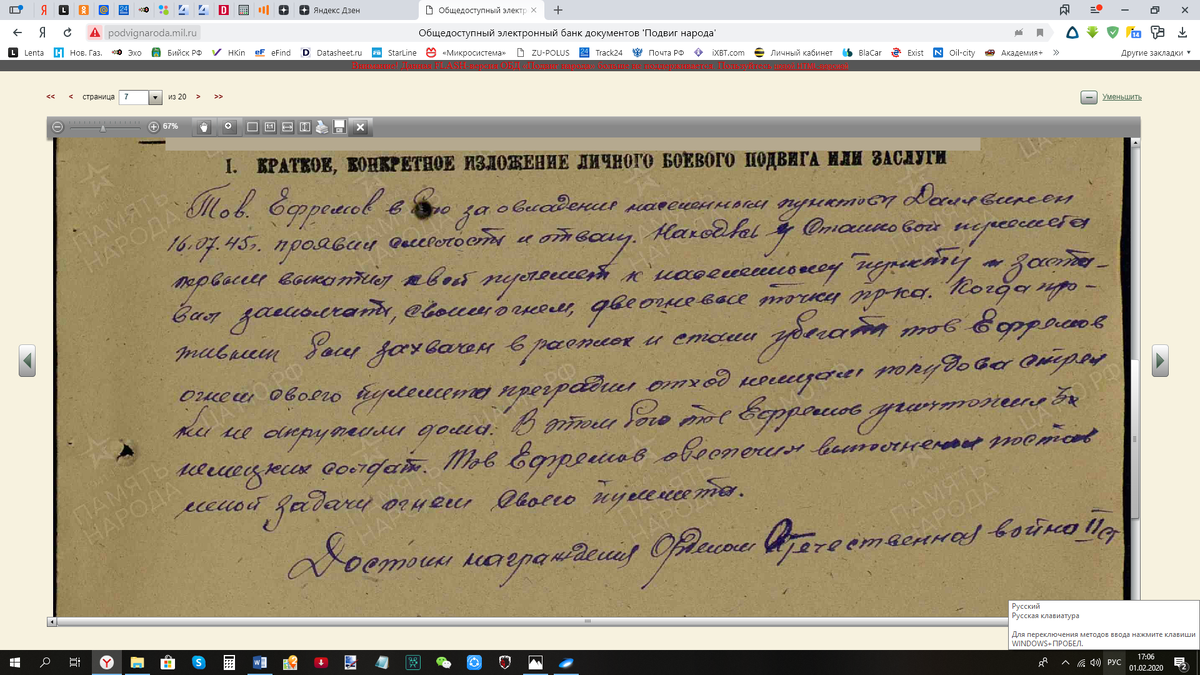 Яндекс Дзен
Общедоступный электр
podvignaroda.mil.ru
Общедоступный электронный банк документов 'Подвиг народа'
Lenta Нов. Газ. Эхо Бийск РФ HKin eFind Datasheet.ru StarLine «Микросистема» ZU-POLUS Track24 Почта РФ iXBT.com Личный кабинет BlaCar Exist Oil-city Академия+ Другие закладки
<< < страница 7 из 20 > >> Уменьшить
67%
I. КРАТКОЕ, КОНКРЕТНОЕ ИЗЛОЖЕНИЕ ЛИЧНОГО БОЕВОГО ПОДВИГА ИЛИ ЗАСЛУГИ
Тов. Ефремов в бою за овладение населенным пунктом
16.07.45г. проявил смелость и отвагу. Находясь у станковой пулемета
первым выкатил свой пулемет к населенному пункту и заста-
вил замолчать, своим огнем, две огневые точки пр-ка. Когда про-
тивник был захвачен в расплох и стали убегать тов Ефремов
огнем своего пулемета преградил отход немцам покудова стрел
ки не окружили дома. В этом бою тов Ефремов уничтожил
немецких солдат. Тов Ефремов обеспечил выполнения постав
леной задачи огнем своего пулемета.
Достоин награждения Орденом Отечественная война II ст
ПАМЯТЬ НАРОДА
ЦАМО.РФ
Русский
Русская клавиатура
Для переключения методов ввода нажмите клавиши
WINDOWS+ПРОБЕЛ.
РУС
17:06
01.02.2020